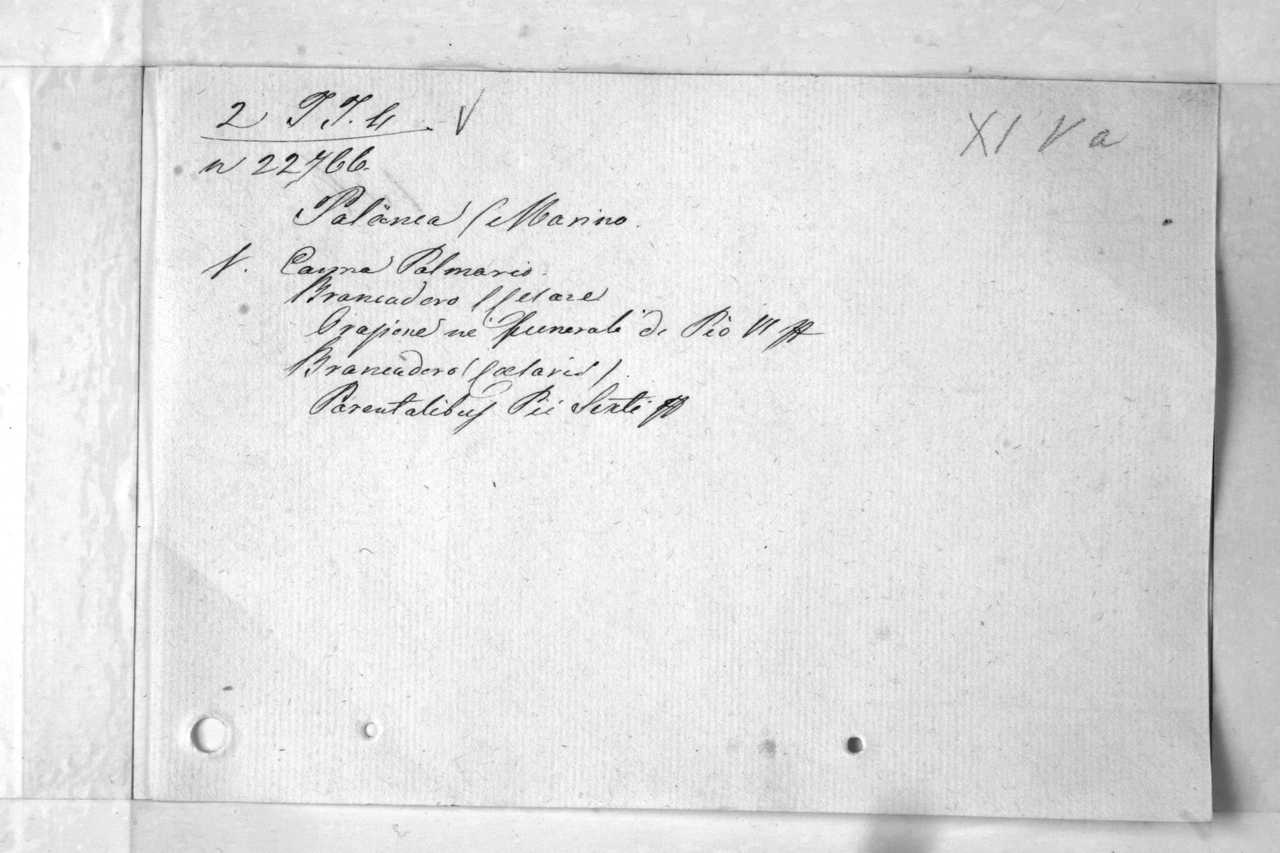 2 T T. 4. V
XI V a
n 22766.
Palănca (Marino.
V. Causa Palmario.
Brancadoro (Cesare
Orazione ne' funerali di Pio VI
Brancadoro (Caesaris).
Parentalibus Pii Sexti